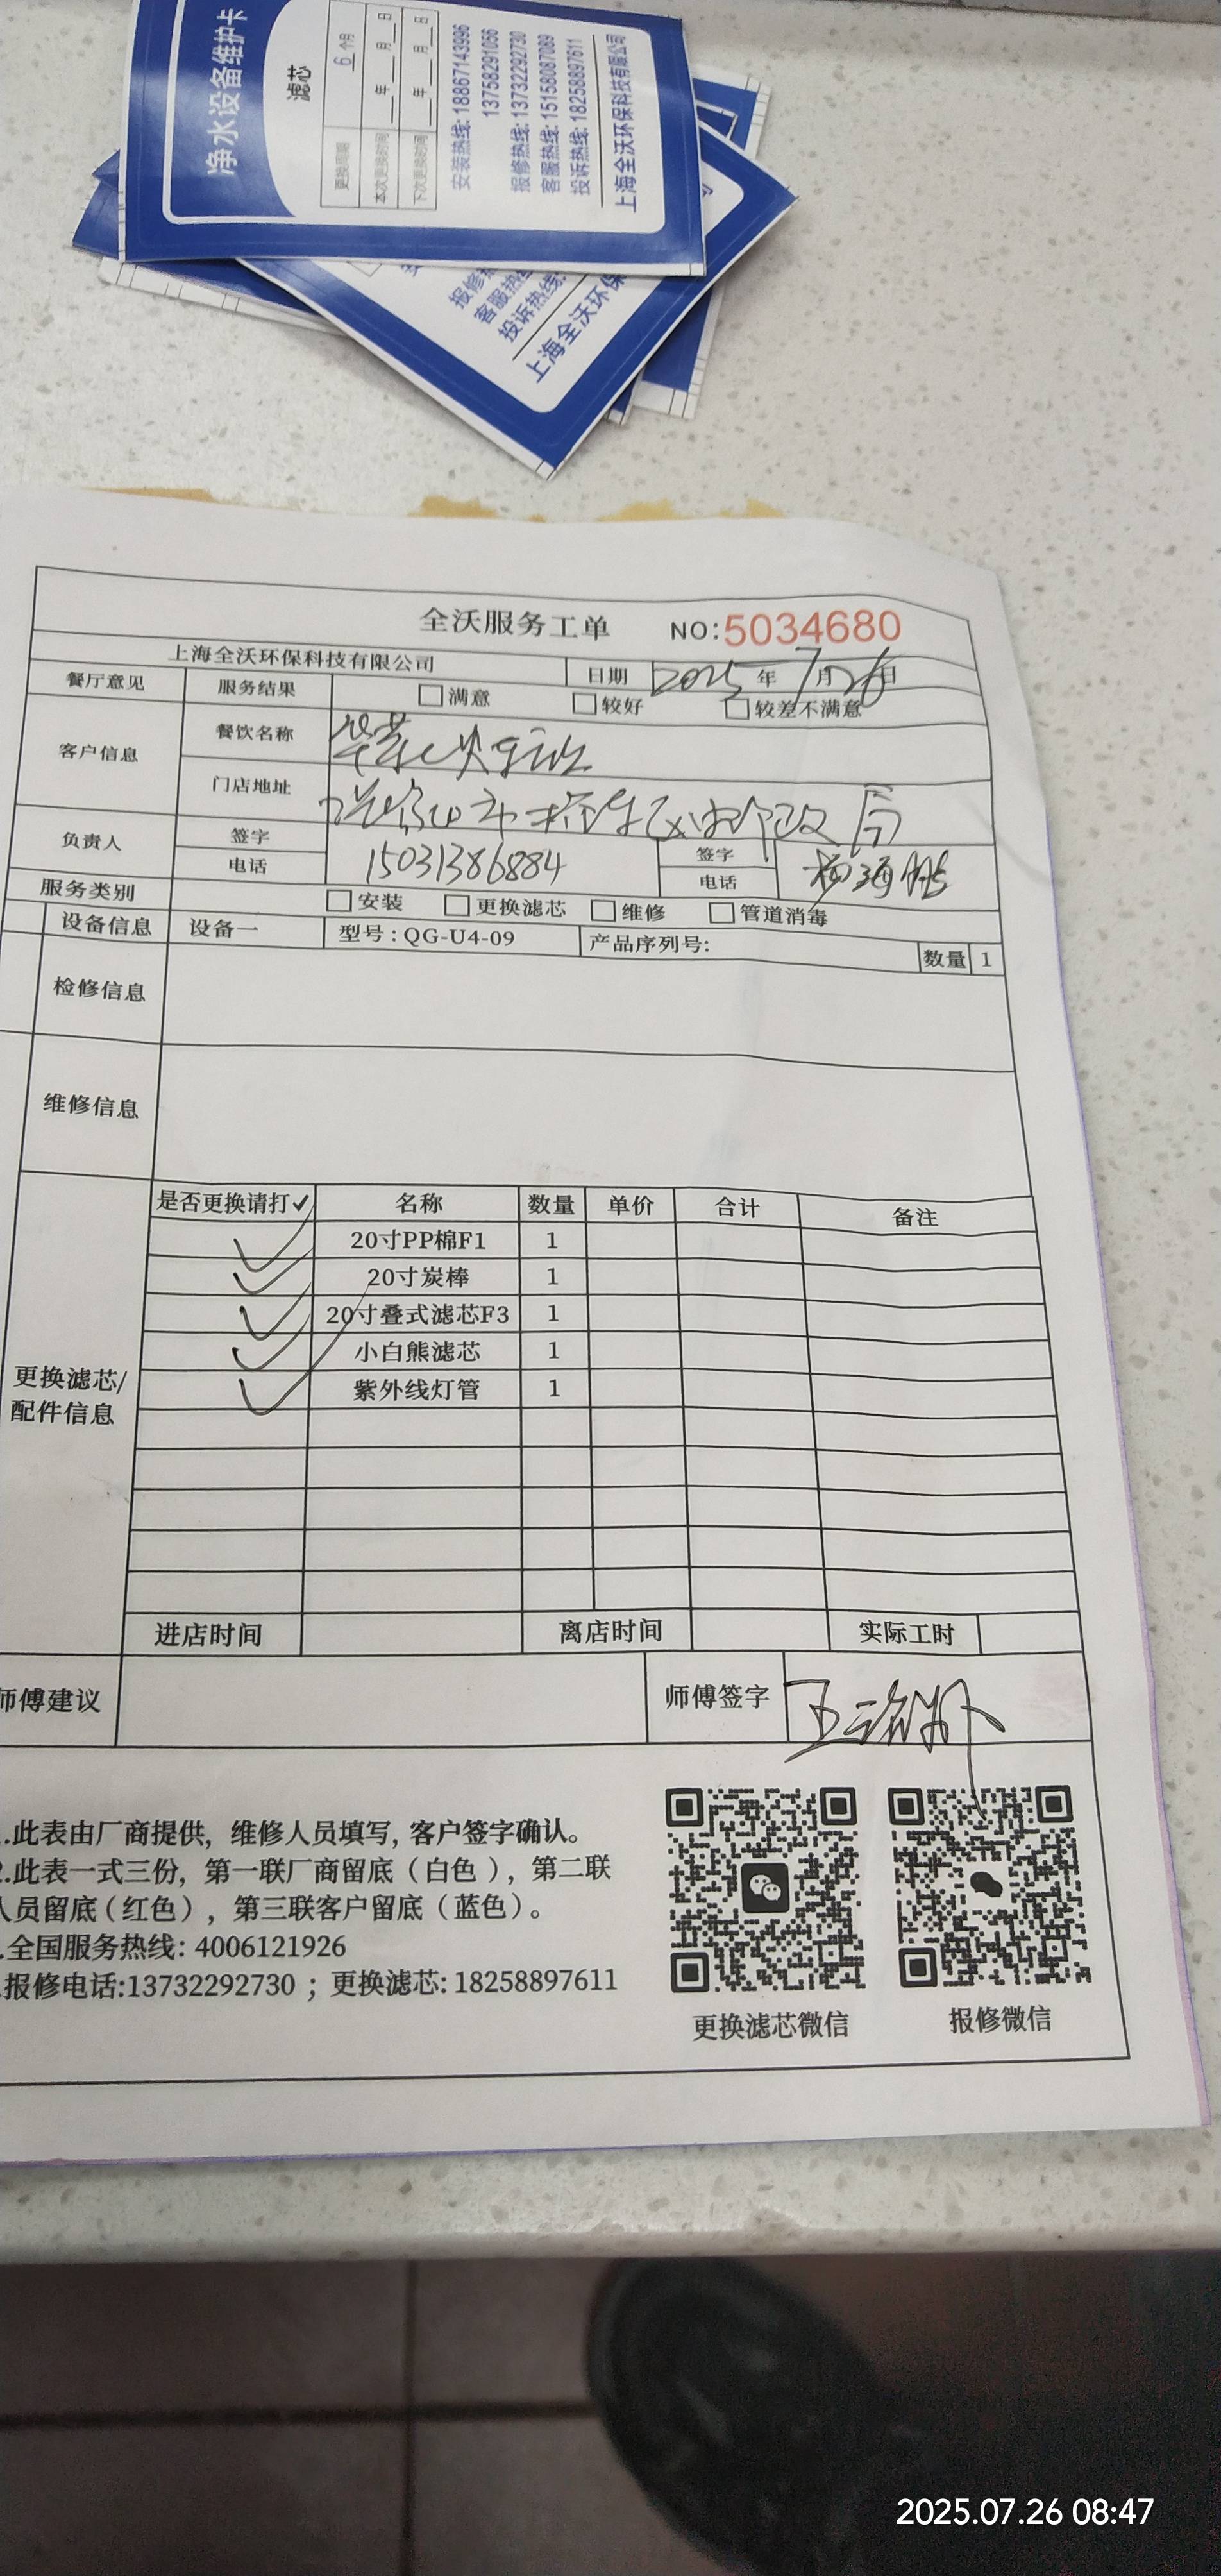 净水设备维护卡
滤芯
更换周期 6 个月
本次更换时间 __年__月__日
下次更换时间 __年__月__日
安装热线: 18867143996
13758291056
报修热线: 13732292730
客服热线: 15158087089
投诉热线: 18258897611
上海全沃环保科技有限公司
报修热
客服热线
投诉热线:
上海全沃环保
全沃服务工单 NO:5034680
上海全沃环保科技有限公司 日期 2025年7月26日
餐厅意见 服务结果 □满意 □较好 □较差不满意
客户信息 餐饮名称
门店地址
负责人 签字 签字
电话 15031386884 电话
服务类别 □安装 □更换滤芯 □维修 □管道消毒
设备信息 设备一 型号:QG-U4-09 产品序列号: 数量 1
检修信息
维修信息
更换滤芯/配件信息
是否更换请打✓ 名称 数量 单价 合计 备注
✓ 20寸PP棉F1 1
✓ 20寸炭棒 1
✓ 20寸叠式滤芯F3 1
✓ 小白熊滤芯 1
✓ 紫外线灯管 1
进店时间 离店时间 实际工时
师傅建议 师傅签字
.此表由厂商提供, 维修人员填写, 客户签字确认。
2.此表一式三份, 第一联厂商留底(白色), 第二联
人员留底(红色), 第三联客户留底(蓝色)。
.全国服务热线: 4006121926
.报修电话:13732292730 ; 更换滤芯: 18258897611
更换滤芯微信 报修微信
2025.07.26 08:47